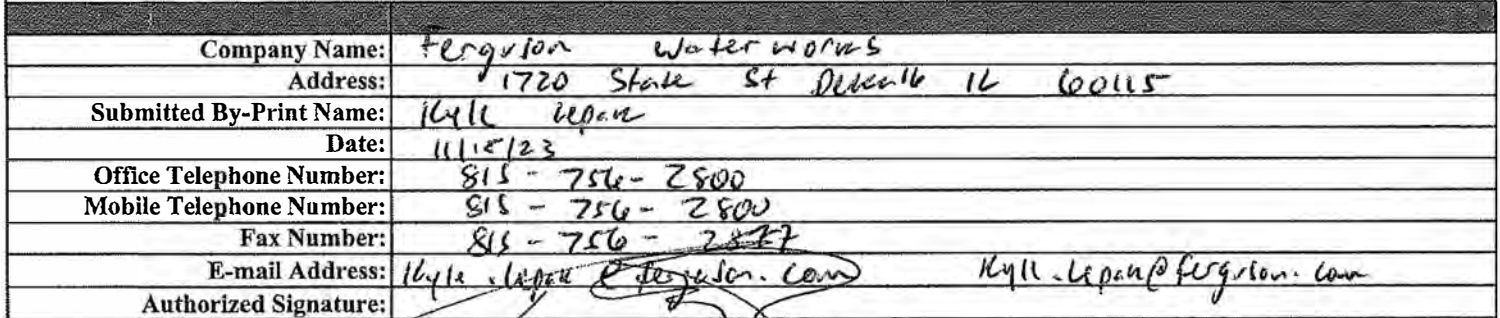 Company Name: Ferguson Waterworks
Address: 1720 State St Dekalb IL 60115
Submitted By-Print Name: Kyle Lepan
Date: 11/15/23
Office Telephone Number: 815-756-2800
Mobile Telephone Number: 815-756-2800
Fax Number: 815-756-2877
E-mail Address: Kyle.Lepan@ferguson.com Kyle.Lepan@ferguson.com
Authorized Signature: